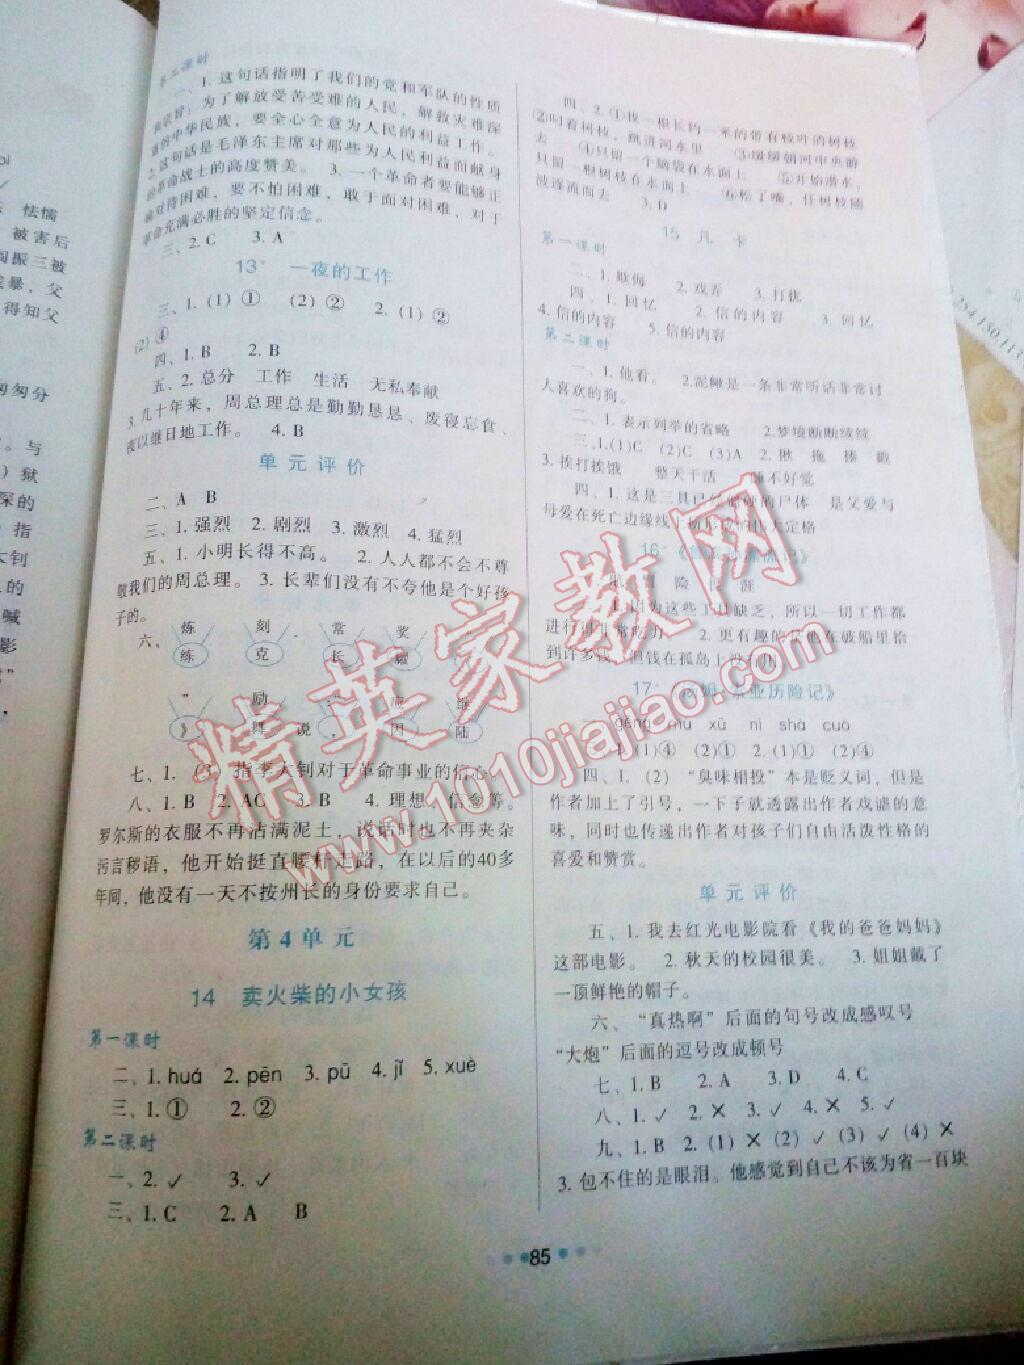 第二课时
一、1. 这句话指明了我们的党和军队的性质
宗旨：为了解放受苦受难的人民，解救灾难深
的中华民族，要全心全意为人民的利益工作。
2. 这句话是毛泽东主席对那些为人民利益而献身
的革命战士的高度赞美。 3. 一个革命者要能够正
确对待困难，要不怕困难，敢于面对困难，对于
革命充满必胜的坚定信念。
三、2. C 3. A
13* 一夜的工作
三、1. (1) ① (2) ② 2. (1) ②
(2) ④
四、1. B 2. B
五、2. 总分 工作 生活 无私奉献
3. 几十年来，周总理总是勤勤恳恳、废寝忘食、
夜以继日地工作。 4. B
单元评价
二、A B
三、1. 强烈 2. 剧烈 3. 激烈 4. 猛烈
五、1. 小明长得不高。 2. 人人都不会不尊
敬我们的周总理。 3. 长辈们没有不夸他是个好孩
子的。
六、 炼 刻 常 奖
练 克 长
励
说 因 陆
七、1. (3) 指李大钊对于革命事业的信心
八、1. B 2. AC 3. B 4. 理想 信念等。
罗尔斯的衣服不再沾满泥土，说话时也不再夹杂
污言秽语，他开始挺直腰杆走路，在以后的40多
年间，他没有一天不按州长的身份要求自己。
第 4 单元
14 卖火柴的小女孩
第一课时
二、1. huá 2. pēn 3. pū 4. jǐ 5. xuè
三、1. ① 2. ②
第二课时
一、2. ✓ 3. ✓
三、1. C 2. A B
四、2. ①找一根长约一米的带有枝叶的树枝
②叼着树枝，跳进河水里 ③缓缓朝河中央游
去 ④只留一个脑袋在水面上 ⑤开始潜水，
只留一根树枝在水面上 ⑥松了嘴，任树枝随
波逐流而去 3. D
15 凡 卡
第一课时
二、1. 欺侮 2. 戏弄 3. 打扰
四、1. 回忆 2. 信的内容 3. 回忆
4. 信的内容 5. 信的内容
第二课时
一、1. 他看。 2. 泥鳅是一条非常听话非常讨
人喜欢的狗。
二、1. 表示列举的省略 2. 梦境断断续续
三、1. (1)C (2)C (3)A 2. 揪 拖 揍 戳
3. 挨打挨饿 整天干活 睡不好觉
四、1. 这是三具已经 的尸体 是父爱与
母爱在死亡边缘线上 的伟大定格
16*
险 涯
1. 因为这些工具缺乏，所以一切工作都
进行得非常吃力 2. 更有趣的是他在破船里拾
到许多钱，但钱在孤岛上没有用
17* 《汤姆·索亚历险记》
gēng mù xū nì shà cuò
1. (1)④ (2)① 2. (1)① (2)②
四、1. (2) “臭味相投”本是贬义词，但是
作者加上了引号，一下子就透露出作者戏谑的意
味，同时也传递出作者对孩子们自由活泼性格的
喜爱和赞赏。
单元评价
五、1. 我去红光电影院看《我的爸爸妈妈》
这部电影。 2. 秋天的校园很美。 3. 姐姐戴了
一顶鲜艳的帽子。
六、“真热啊”后面的句号改成感叹号
“大炮”后面的逗号改成顿号
七、1. B 2. A 3. D 4. C
八、1. ✓ 2. ✕ 3. ✓ 4. ✕ 5. ✓
九、1. B 2. (1) ✕ (2) ✓ (3) ✓ (4) ✕
3. 包不住的是眼泪。他感觉到自己不该为省一百块
85
精英家教网
www.1010jiajiao.com
怯懦
被害后
阎振三被
暴，父
得知父
匆匆分
与
狱
深的
指
大钊
的
喊
影